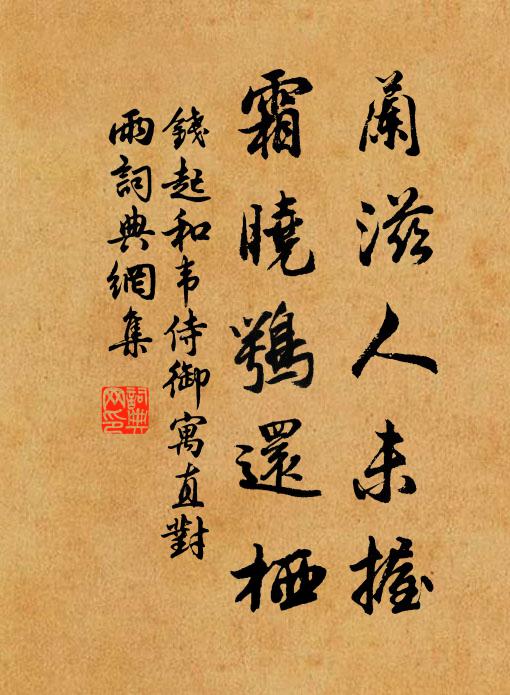 蘭滋人未握
霜曉鶚還栖
錢起和韦侍御寓直對
雨詞典網集
詞典
网印